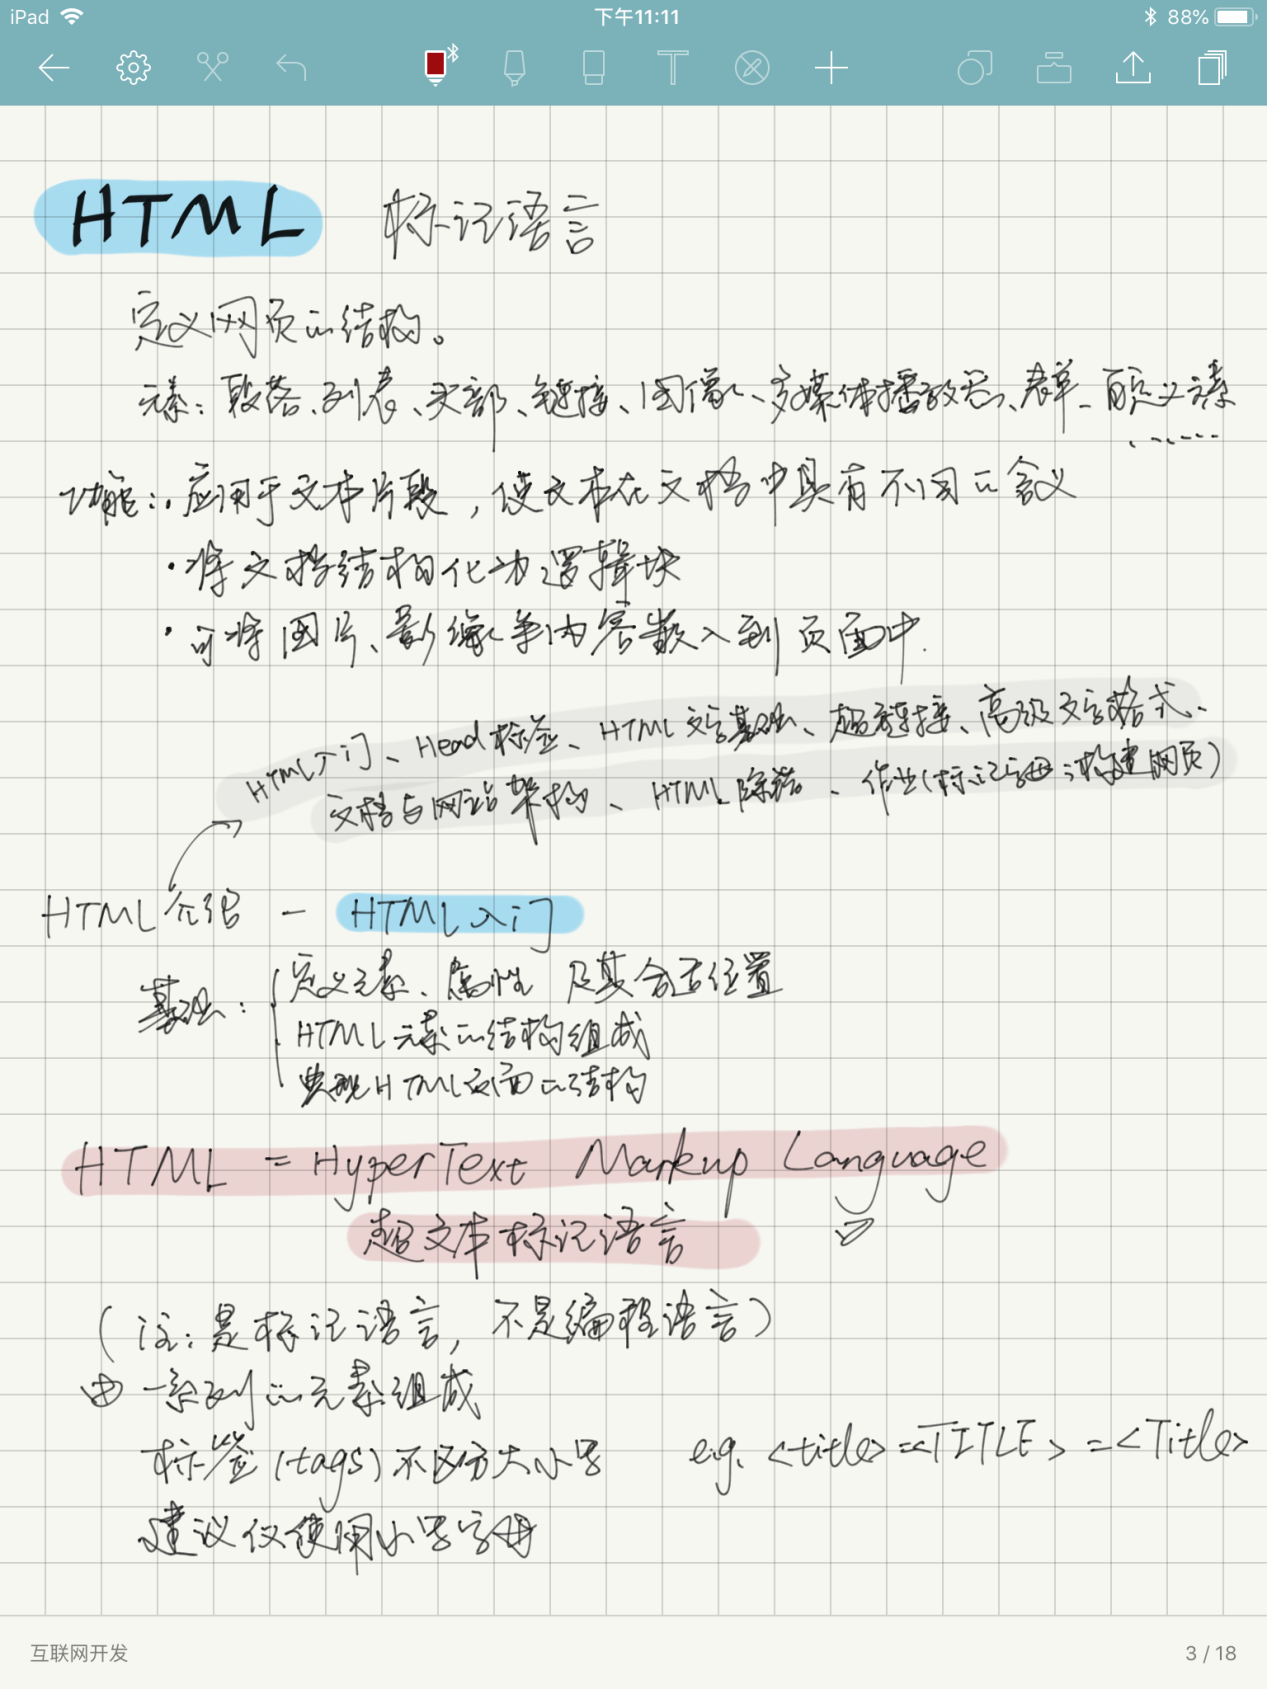 iPad 下午11:11 88%
HTML 标记语言
定义网页的结构。
元素：段落、列表、头部、链接、图像、多媒体播放器、表单、自定义元素
......
功能：· 应用于文本片段，使文本在文档中具有不同的含义
· 将文档结构化为逻辑块
· 可将图片、影像等内容嵌入到页面中.
HTML入门、Head标签、HTML文字基础、超链接、高级文字格式、
文档与网站架构、HTML除错、作业(标记字母；构建网页)
HTML介绍 — HTML入门
基础： 定义元素、属性 及其合适位置
HTML元素的结构组成
典型HTML页面的结构
HTML = HyperText Markup Language
超文本标记语言
(注：是标记语言，不是编程语言)
由一系列的元素组成
标签(tags)不区分大小写 e.g. <title>=<TITLE>=<Title>
建议仅使用小写字母
互联网开发 3 / 18